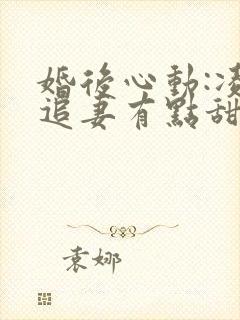 婚後心動:凌
追妻有點甜
袁娜